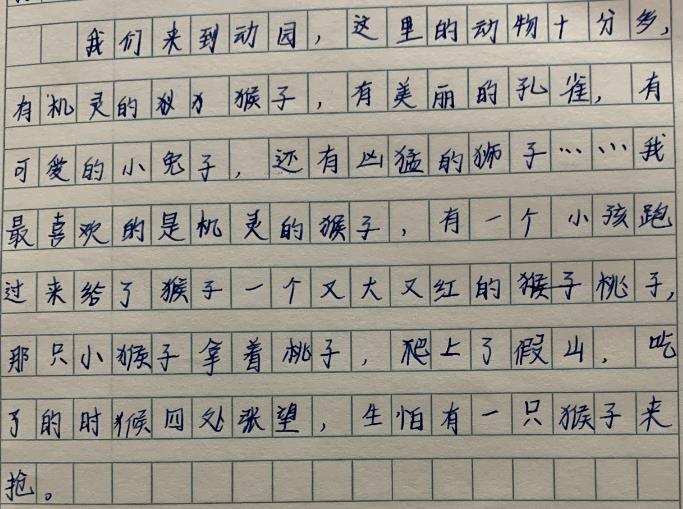 我们来到动园，这里的动物十分多，
有机灵的猴子，有美丽的孔雀，有
可爱的小兔子，还有凶猛的狮子……我
最喜欢的是机灵的猴子，有一个小孩跑
过来给了猴子一个又大又红的桃子，
那只小猴子拿着桃子，爬上了假山，吃
了的时猴四处张望，生怕有一只猴子来
抢。